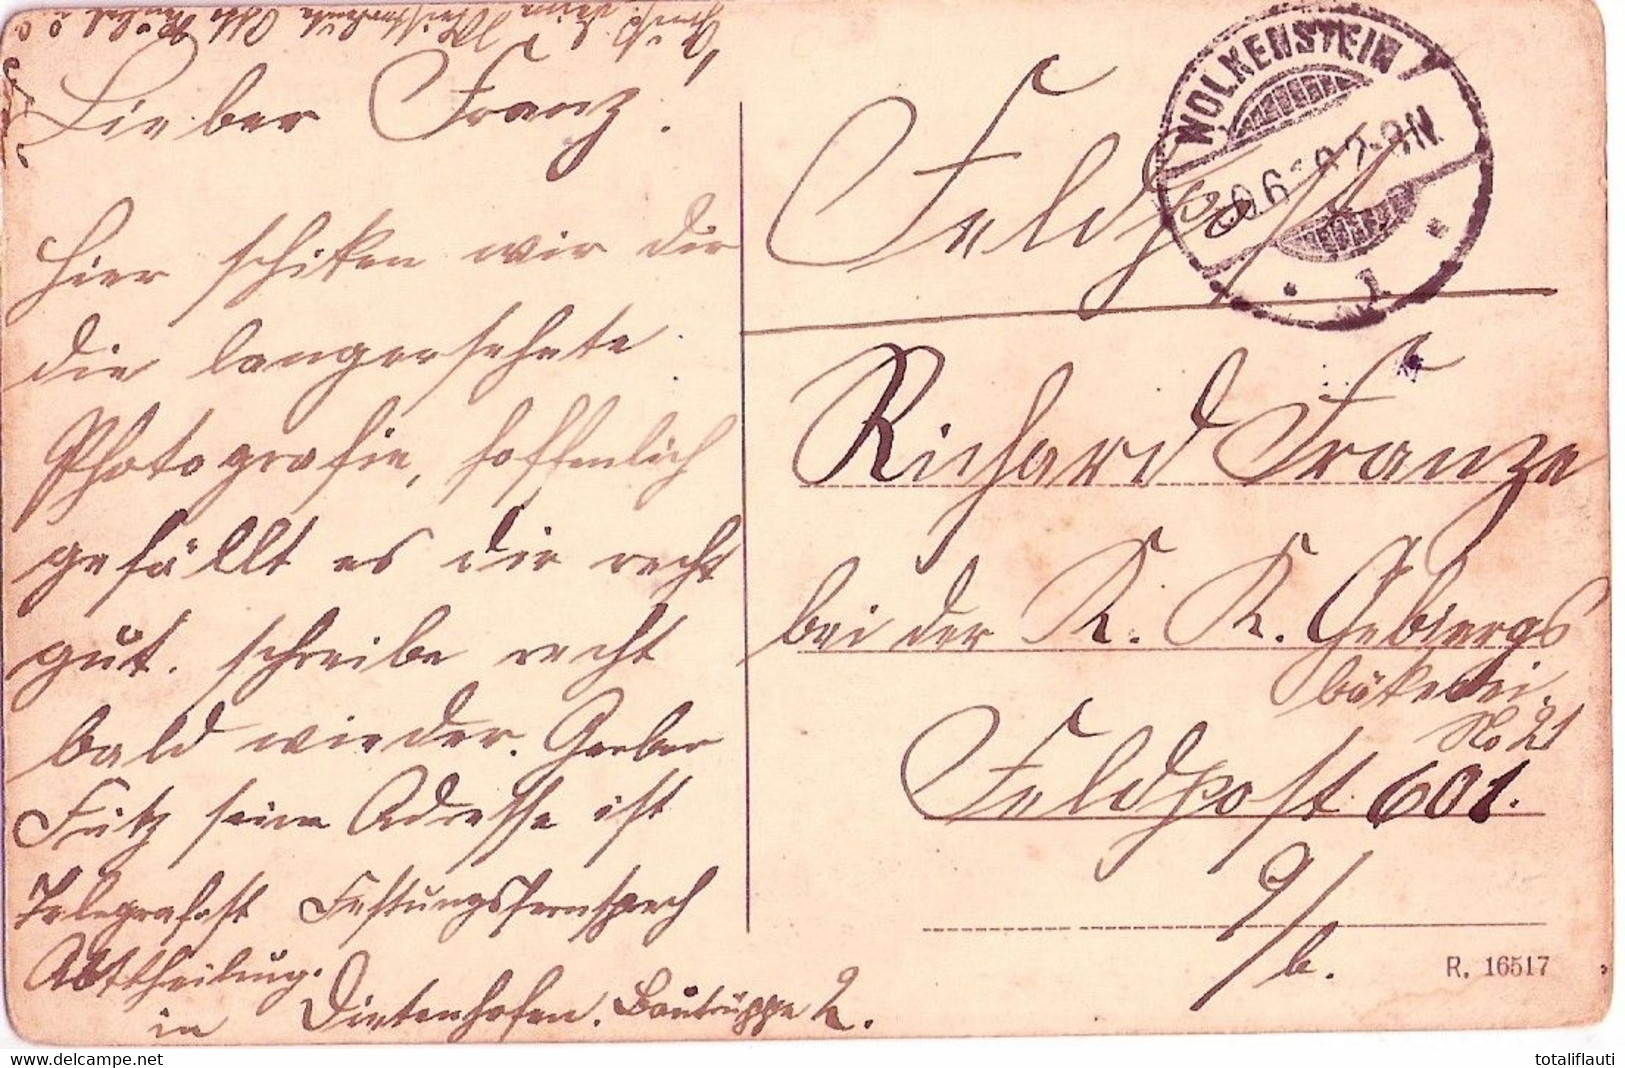 Lieber Franz!
Hier schiken wir dir
die langersehnte
Photografie, hoffenlich
gefällt es dir recht
gut. schreibe recht
bald wieder. Gerber
Fritz seine Adresse ist
Telegrafist Festungsfernsprech
Abttheilung.
in Dietenhofen. Bautruppe 2.
Feldpost
WOLKENSTEIN
Richard Franze
bei der K. K. Gebiergs
bäkerei.
No 21
Feldpost 601.
9/
b.
R. 16517
totaliflauti